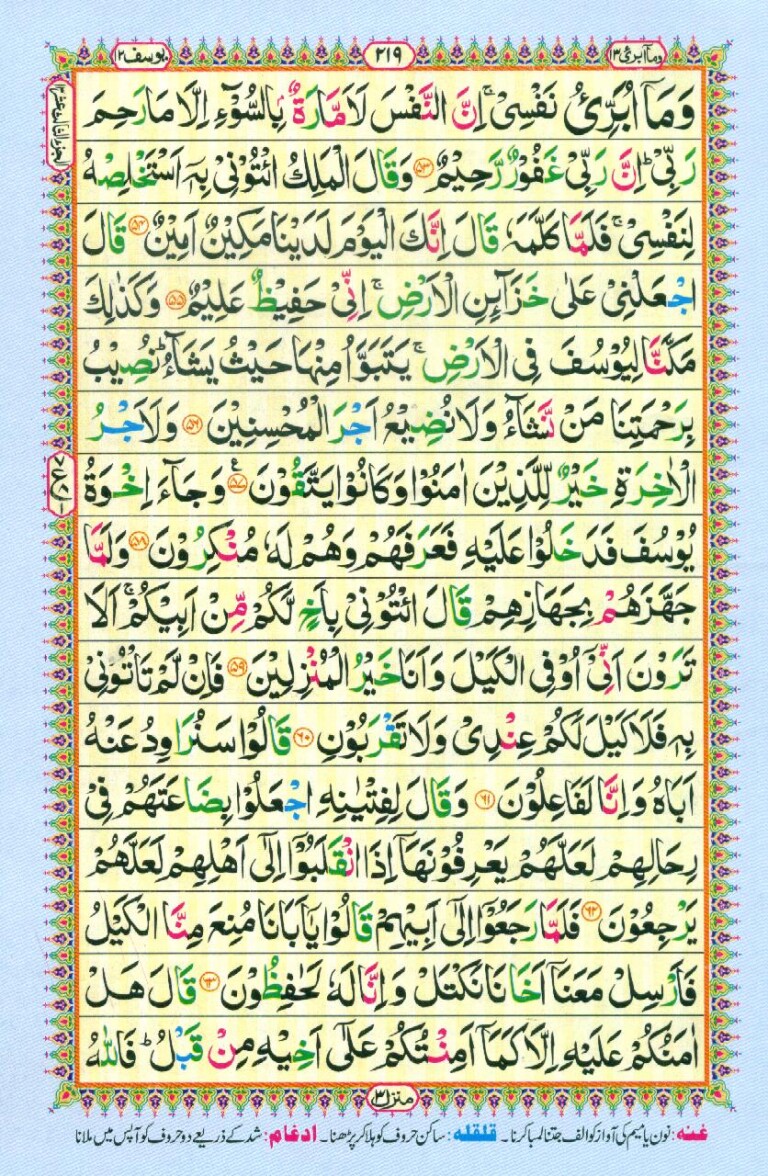 وما ابرئ ۱۳
۲۱۹
یوسف ۱۲
وَمَاۤ اُبَرِّئُ نَفۡسِیۡ ۚ اِنَّ النَّفۡسَ لَاَمَّارَةٌۢ بِالسُّوۡٓءِ اِلَّا مَا رَحِمَ
رَبِّیۡ ؕ اِنَّ رَبِّیۡ غَفُوۡرٌ رَّحِیۡمٌ ﴿۵۳﴾ وَقَالَ الۡمَلِكُ ائۡتُوۡنِیۡ بِهٖۤ اَسۡتَخۡلِصۡهُ
لِنَفۡسِیۡ ۚ فَلَمَّا كَلَّمَهٗ قَالَ اِنَّكَ الۡیَوۡمَ لَدَیۡنَا مَكِیۡنٌ اَمِیۡنٌ ﴿۵۴﴾ قَالَ
اجۡعَلۡنِیۡ عَلٰی خَزَآئِنِ الۡاَرۡضِ ۚ اِنِّیۡ حَفِیۡظٌ عَلِیۡمٌ ﴿۵۵﴾ وَكَذٰلِكَ
مَكَّنَّا لِیُوۡسُفَ فِی الۡاَرۡضِ ۚ یَتَبَوَّاُ مِنۡهَا حَیۡثُ یَشَآءُ ؕ نُصِیۡبُ
بِرَحۡمَتِنَا مَنۡ نَّشَآءُ وَلَا نُضِیۡعُ اَجۡرَ الۡمُحۡسِنِیۡنَ ﴿۵۶﴾ وَلَاَجۡرُ
الۡاٰخِرَةِ خَیۡرٌ لِّلَّذِیۡنَ اٰمَنُوۡا وَكَانُوۡا یَتَّقُوۡنَ ﴿۵۷﴾ وَجَآءَ اِخۡوَةُ
یُوۡسُفَ فَدَخَلُوۡا عَلَیۡهِ فَعَرَفَهُمۡ وَهُمۡ لَهٗ مُنۡكِرُوۡنَ ﴿۵۸﴾ وَلَمَّا
جَهَّزَهُمۡ بِجَهَازِهِمۡ قَالَ ائۡتُوۡنِیۡ بِاَخٍ لَّكُمۡ مِّنۡ اَبِیۡكُمۡ ۚ اَلَا
تَرَوۡنَ اَنِّیۡۤ اُوۡفِی الۡكَیۡلَ وَاَنَا خَیۡرُ الۡمُنۡزِلِیۡنَ ﴿۵۹﴾ فَاِنۡ لَّمۡ تَاۡتُوۡنِیۡ
بِهٖ فَلَا كَیۡلَ لَكُمۡ عِنۡدِیۡ وَلَا تَقۡرَبُوۡنِ ﴿۶۰﴾ قَالُوۡا سَنُرَاوِدُ عَنۡهُ
اَبَاهُ وَاِنَّا لَفَاعِلُوۡنَ ﴿۶۱﴾ وَقَالَ لِفِتۡیٰنِهِ اجۡعَلُوۡا بِضَاعَتَهُمۡ فِیۡ
رِحَالِهِمۡ لَعَلَّهُمۡ یَعۡرِفُوۡنَهَاۤ اِذَا انۡقَلَبُوۡۤا اِلٰۤی اَهۡلِهِمۡ لَعَلَّهُمۡ
یَرۡجِعُوۡنَ ﴿۶۲﴾ فَلَمَّا رَجَعُوۡۤا اِلٰۤی اَبِیۡهِمۡ قَالُوۡا یٰۤاَبَانَا مُنِعَ مِنَّا الۡكَیۡلُ
فَاَرۡسِلۡ مَعَنَاۤ اَخَانَا نَكۡتَلۡ وَاِنَّا لَهٗ لَحٰفِظُوۡنَ ﴿۶۳﴾ قَالَ هَلۡ
اٰمَنُكُمۡ عَلَیۡهِ اِلَّا كَمَاۤ اَمِنۡتُكُمۡ عَلٰۤی اَخِیۡهِ مِنۡ قَبۡلُ ؕ فَاللّٰهُ
منزل ۳
غنہ: نون یا میم کی آواز کو الف جتنا لمبا کرنا۔ قلقلہ: ساکن حروف کو ہلا کر پڑھنا۔ ادغام: شد کے ذریعے دو حروف کو آپس میں ملانا